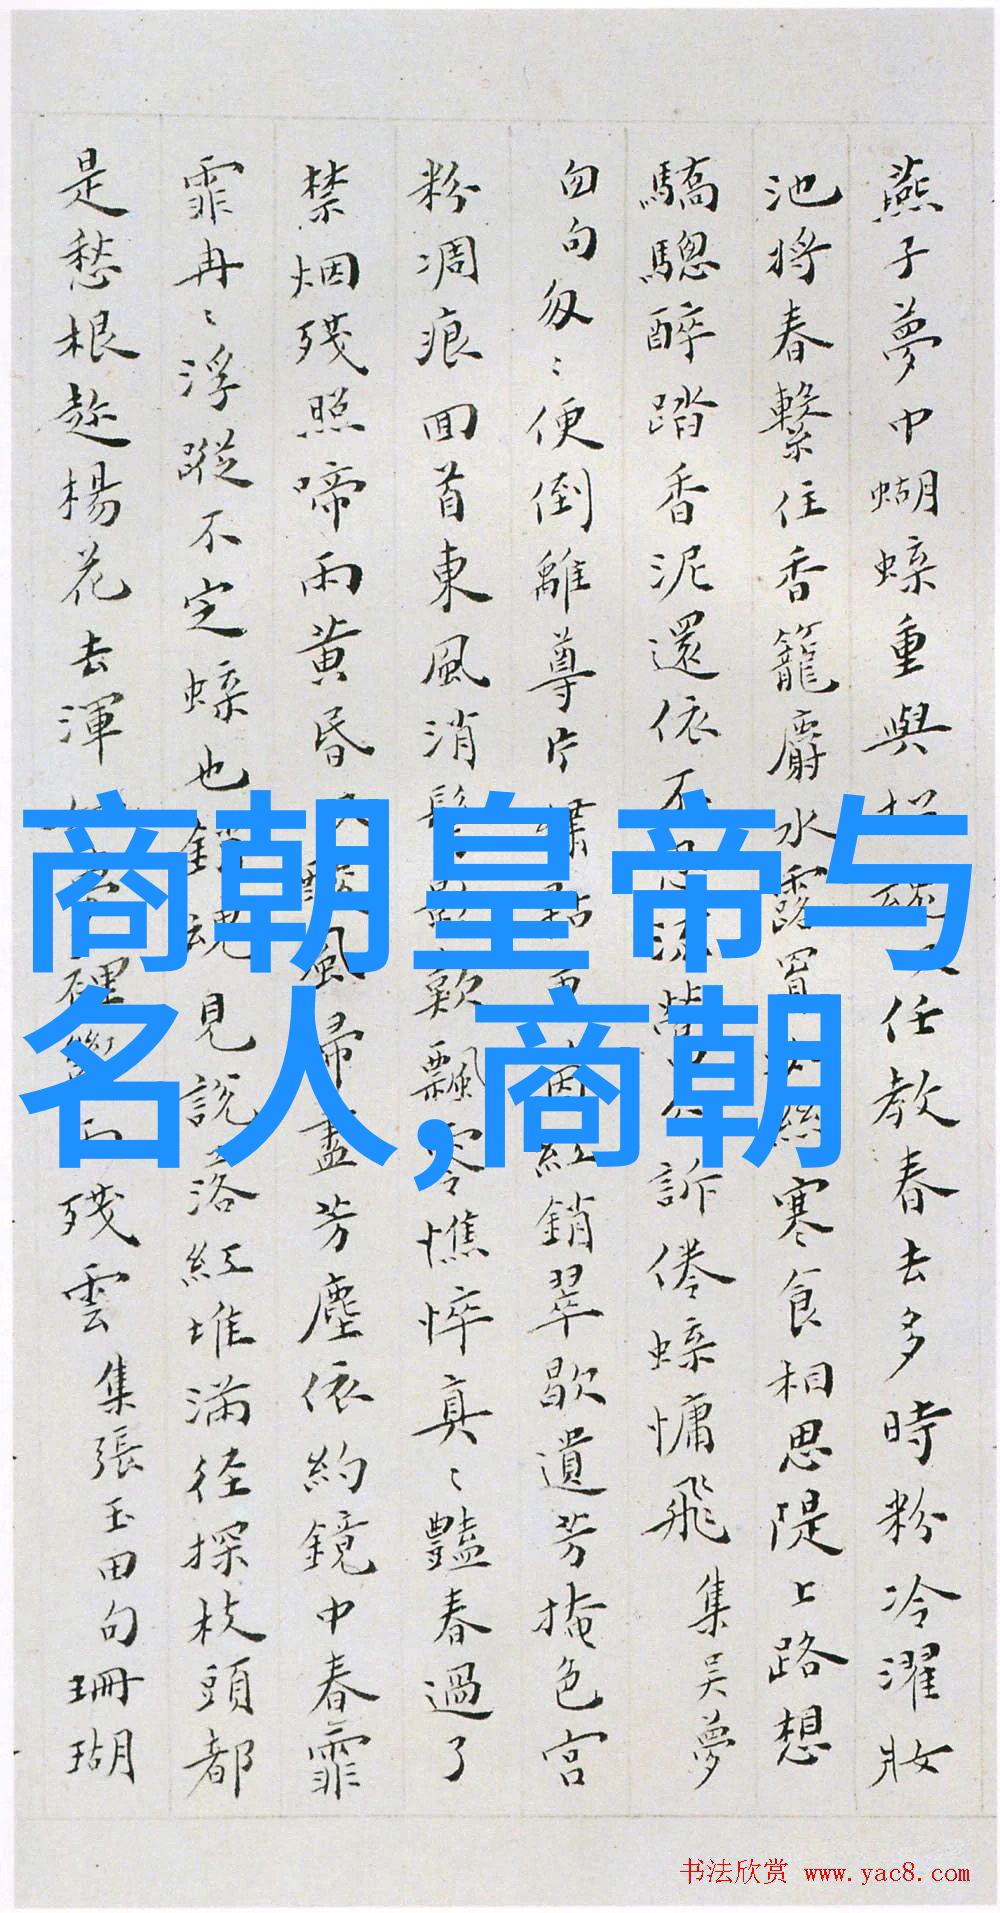 燕子夢中蝴蝶重與
任教春去多時粉冷濯妝
池將春繫住香籠麝水露
寒食相思隄上路想
驕驄醉踏香泥還依不
訴倦蝶慵飛 集吴夢
勿句匆〻便倒離尊片
紅銷翠歇遺芳掩色宫
粉凋痕面首東風消
飄零憔悴真〻豔春過了
禁烟殘照啼雨黄昏
風帚盡芳塵依約鏡中春霏
霏冉〻浮蹤不定蝶也
見説落紅堆滿径探枝頭都
是愁根趁楊花去渾
殘雲 集張玉田句珊瑚
商朝皇帝与
名人,商朝
书法欣赏 www.yac8.com